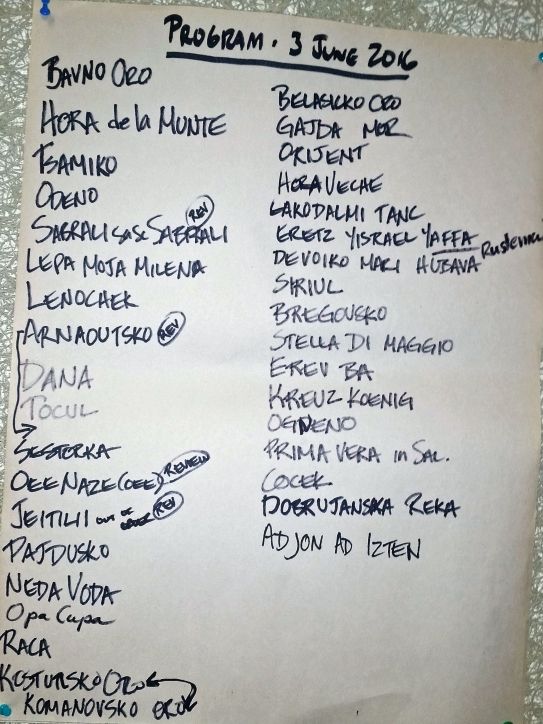 PROGRAM. 3 JUNE 2016
BAVNO ORO
HORA de la MUNTE
TSAMIKO
ODENO
REV
SABRALI SA SE SABRALI
LEPA MOJA MILENA
LENOCHEK
ARNAOUTSKO REV
DANA
TOCUL
SESTORKA
OEE NAZE (OEE) REVIEW
JEITILI OUT OF REV
PAJDUSKO
NEDA VODA
Opa Cupa
RACA
KOSTURSKO ORO
KOMANOVSKO ORO
BELASICKO ORO
GAJDA MOR
ORIJENT
HORA VECHE
LAKODALMI TANC
ERETZ YISRAEL YAFFA
DEVOIKO MARI HUBAVA Rustemul
SIRIUL
BREGOVSKO
STELLA DI MAGGIO
EREV BA
KREUZ KOENIG
PRIMA VERA in SAL.
COCEK
DOBRUJANSKA REKA
AD JON AD IZTEN